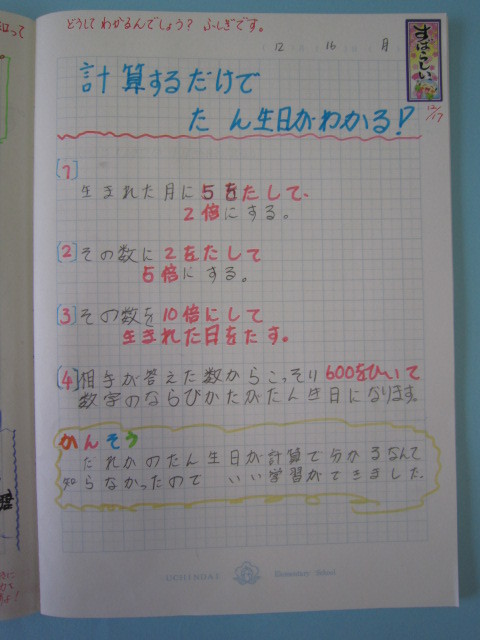 どうしてわかるんでしょう？ ふしぎです。
12 16 月
すばらしい
12/17
計算するだけで
たん生日がわかる！
[1]
生まれた月に5をたして、
2倍にする。
[2] その数に2をたして
5倍にする。
[3] その数を10倍にして
生まれた日をたす。
[4] 相手が答えた数からこっそり600をひいて
数字のならびかたがたん生日になります。
かんそう
だれかのたん生日が計算で分かるなんて
知らなかったので いい学習ができました。
Elementary School